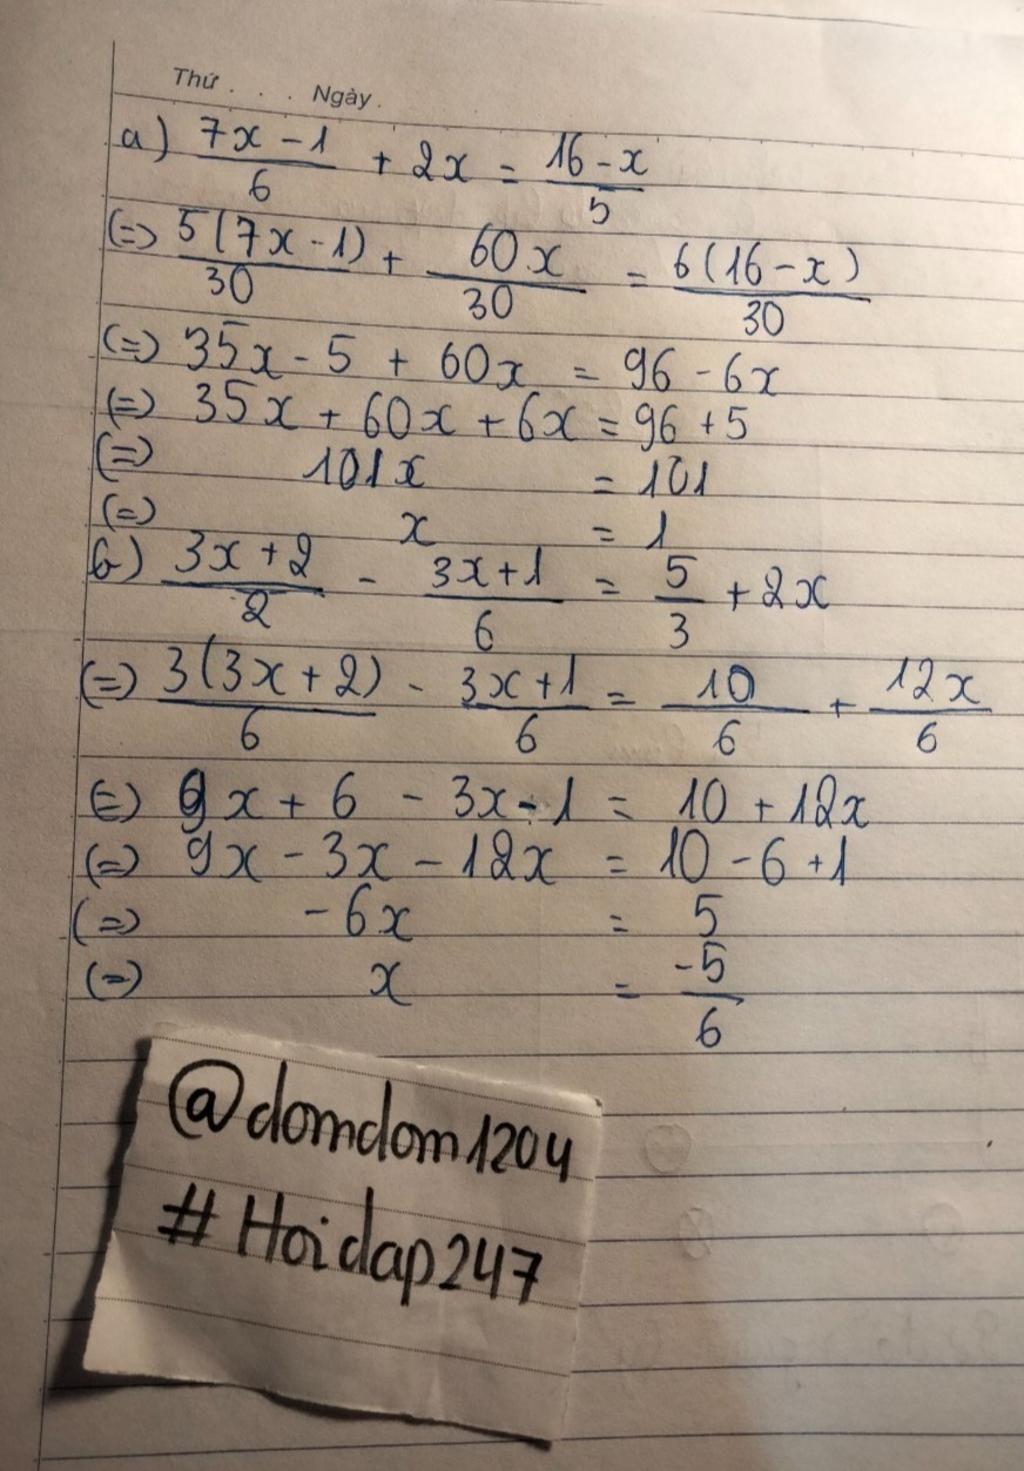 Thứ . . . Ngày .
a) (7x - 1)/6 + 2x = (16 - x)/5
(=) 5(7x - 1)/30 + 60x/30 = 6(16 - x)/30
(=) 35x - 5 + 60x = 96 - 6x
(=) 35x + 60x + 6x = 96 + 5
(=) 101x = 101
(=) x = 1
b) (3x + 2)/2 - (3x + 1)/6 = 5/3 + 2x
(=) 3(3x + 2)/6 - (3x + 1)/6 = 10/6 + 12x/6
(=) 9x + 6 - 3x - 1 = 10 + 12x
(=) 9x - 3x - 12x = 10 - 6 + 1
(=) -6x = 5
(=) x = -5/6
@domdom1204
# Hoidap247